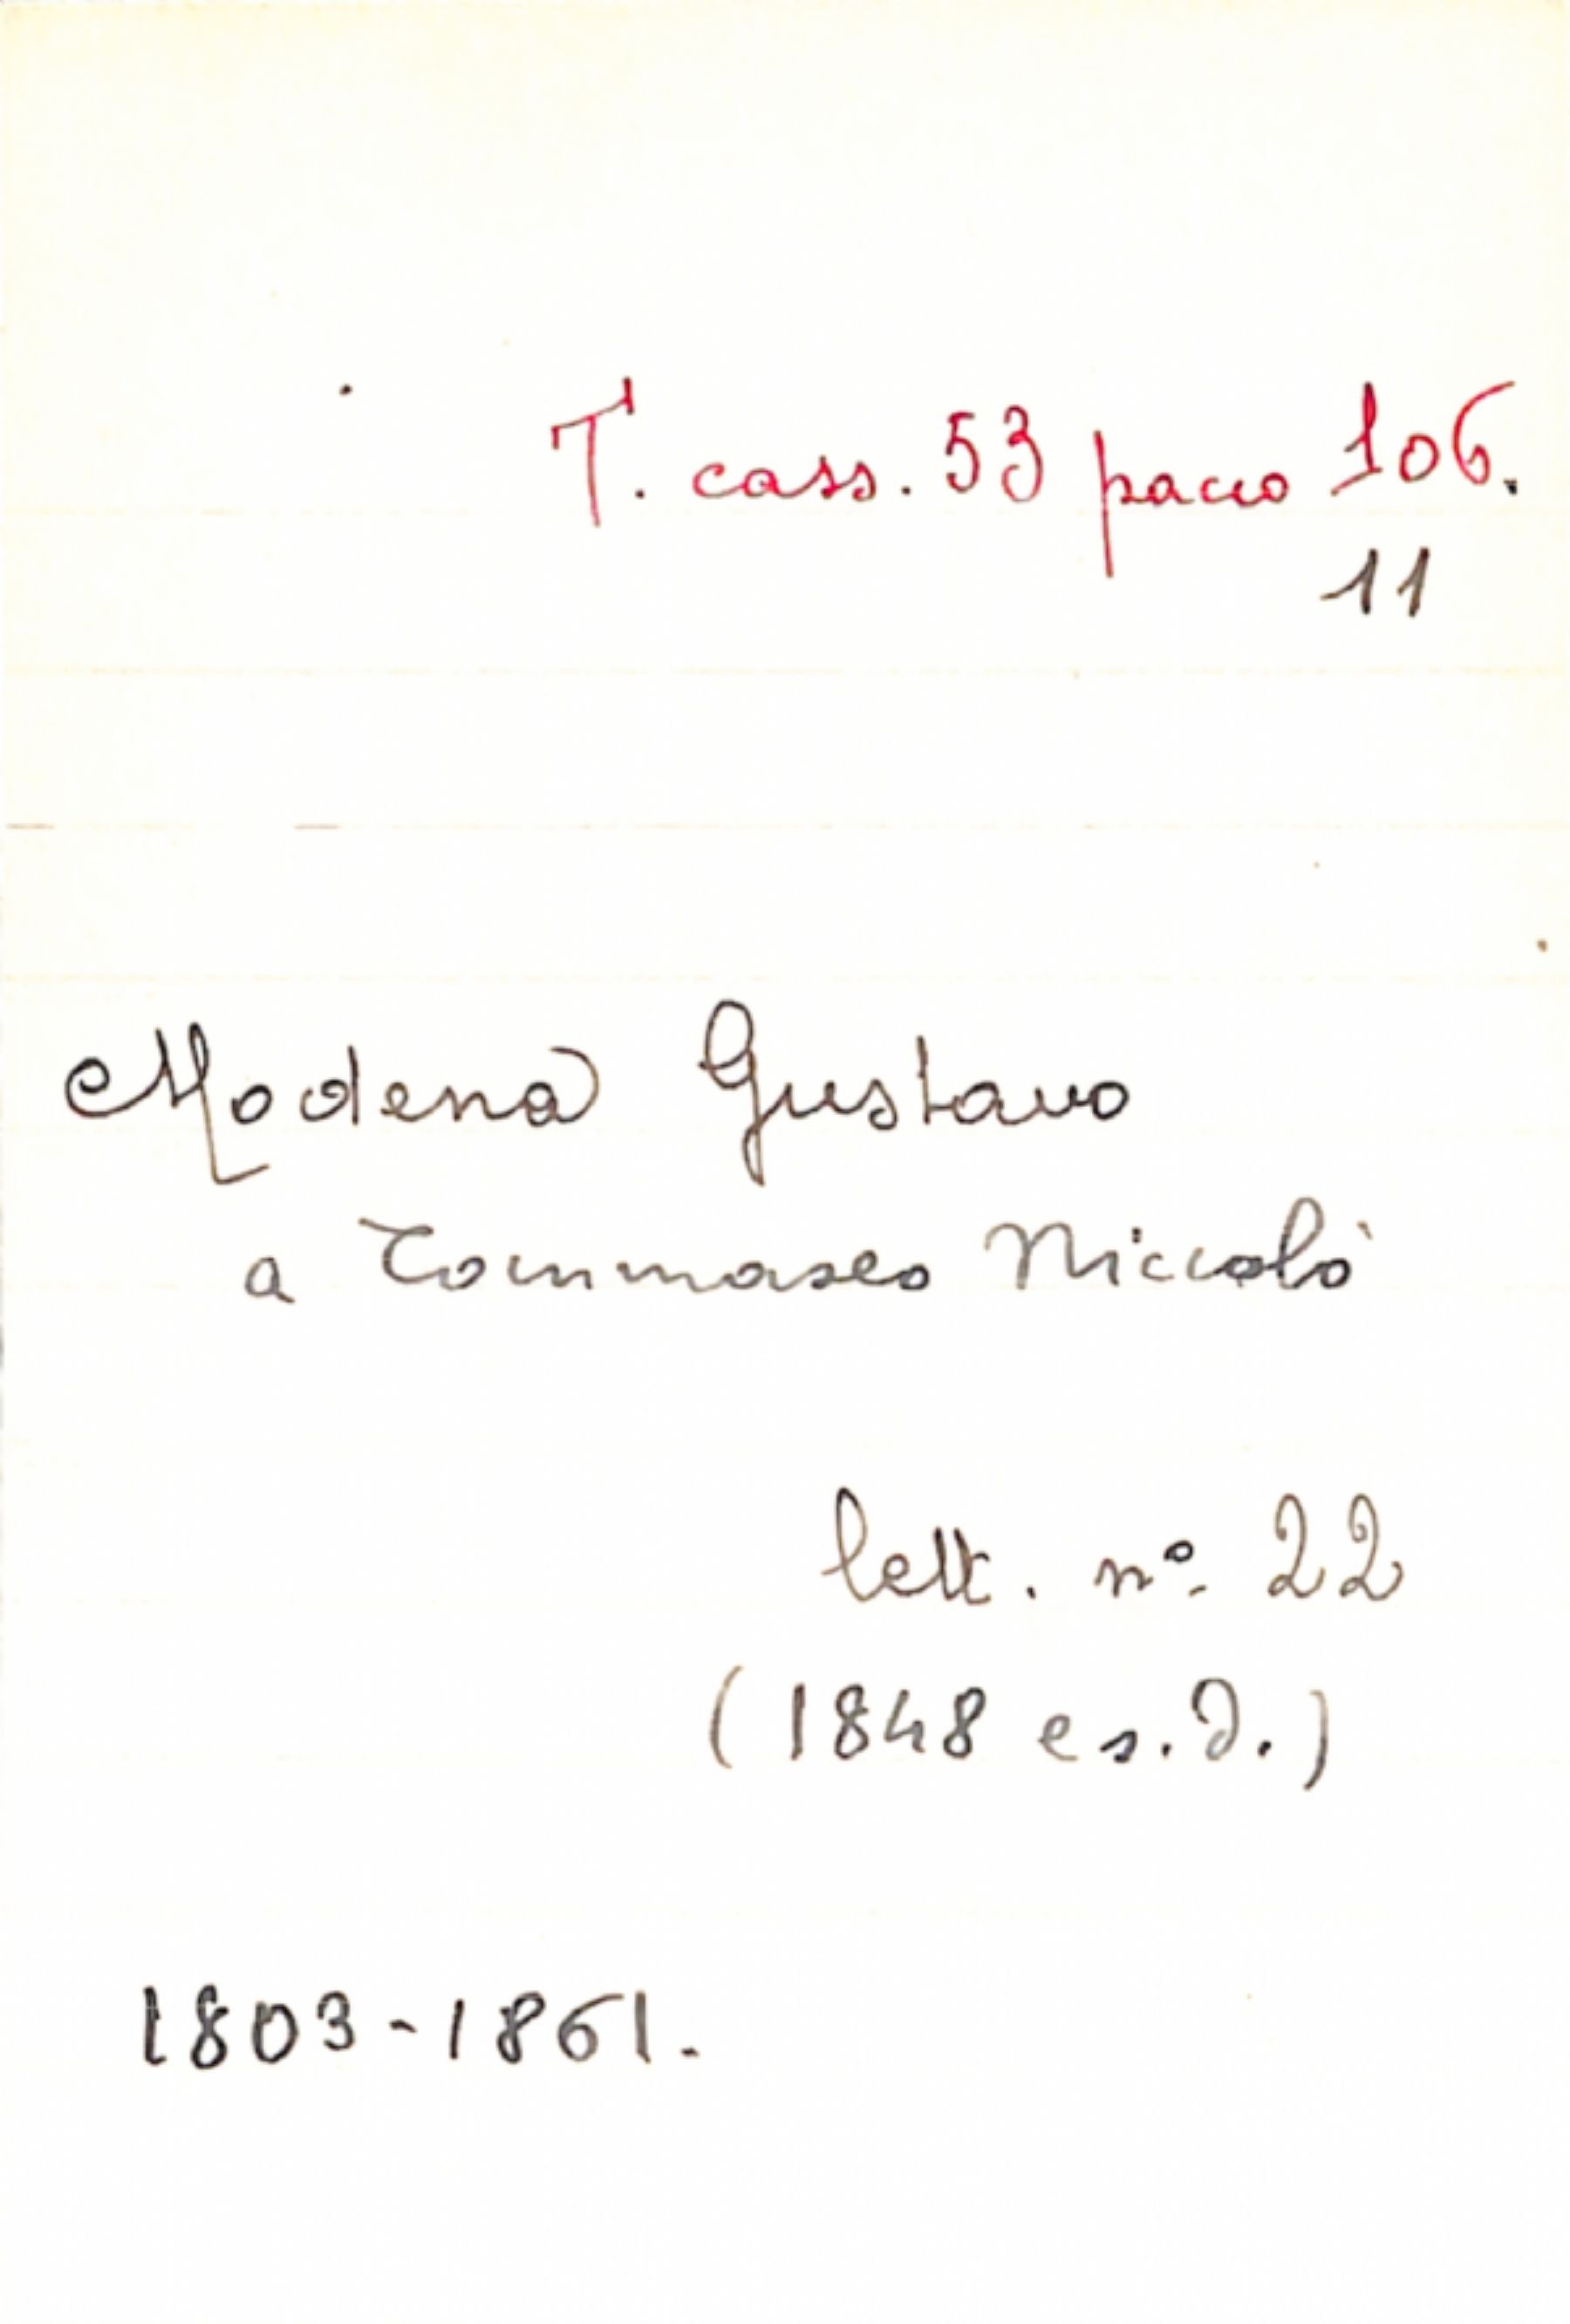 T. cass. 53 pacco 106.
11
Modena Gustavo
a Tommaseo Niccolò
lett. nº. 22
(1848 e s.d.)
1803-1861.